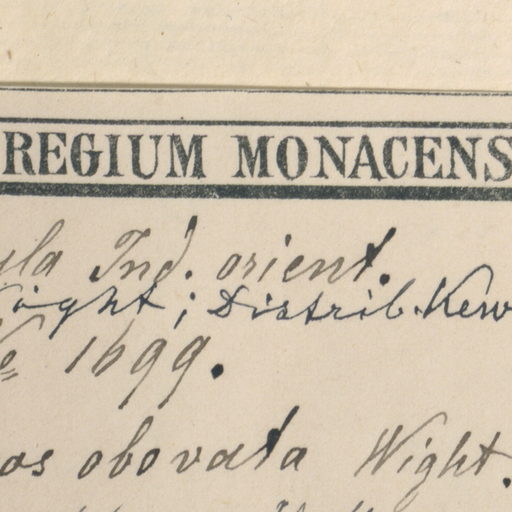 REGIUM MONACENS
ula Ind. orient.
Wight; Distrib. Kew
No 1699.
os obovata Wight.